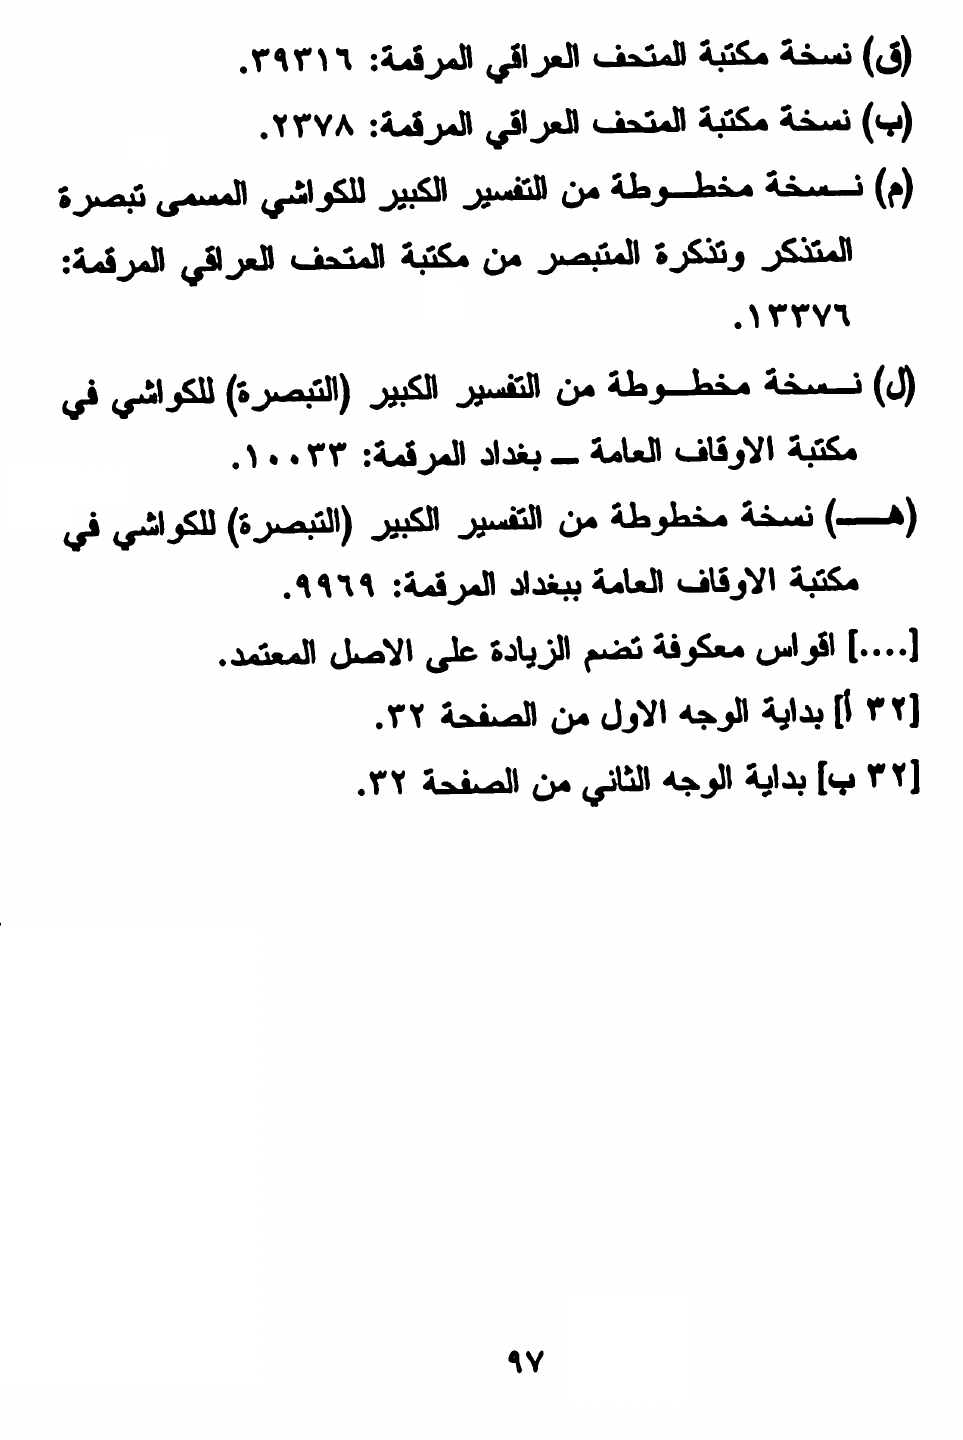 (ق) نسخة مكتبة المتحف العراقي المرقمة: ٣٩٣١٦.
(ب) نسخة مكتبة المتحف العراقي المرقمة: ٢٣٧٨.
(م) نسخة مخطوطة من التفسير الكبير للكواشي المسمى تبصرة
المتذكر وتذكرة المتبصر من مكتبة المتحف العراقي المرقمة:
١٣٣٧٦.
(ل) نسخة مخطوطة من التفسير الكبير (التبصرة) للكواشي في
مكتبة الاوقاف العامة ــ بغداد المرقمة: ١٠٠٣٣.
(هـ) نسخة مخطوطة من التفسير الكبير (التبصرة) للكواشي في
مكتبة الاوقاف العامة ببغداد المرقمة: ٩٩٦٩.
[....] اقواس معكوفة تضم الزيادة على الاصل المعتمد.
[٣٢ أ] بداية الوجه الاول من الصفحة ٣٢.
[٣٢ ب] بداية الوجه الثاني من الصفحة ٣٢.
٩٧